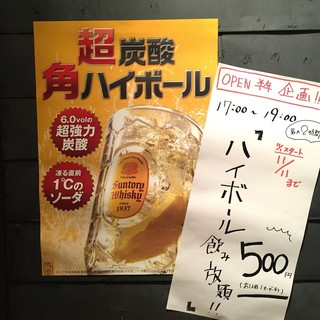 超炭酸
角ハイボール
6.0volの
超強力
炭酸
凍る直前
1℃の
ソーダ
Suntory
Whisky
SINCE
1937
OPEN半年 企画!!
17:00~19:00
スタート
11/11
まで
ハイボール
飲み放題!!
500円